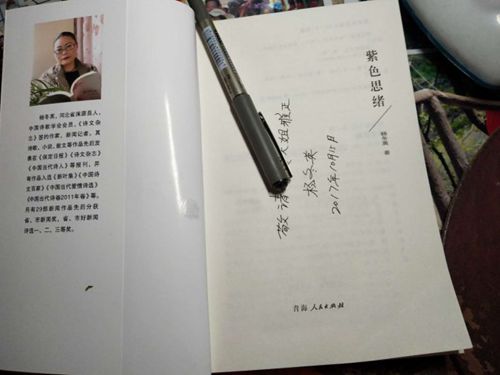 杨冬英，河北省涞源县人，
中国诗歌学会会员，《诗文杂
志》签约作家，新闻记者。其
诗歌、小说、散文等作品先后发
表在《保定日报》《诗文杂志》
《中国当代诗人》等报刊，并
有作品入选《新叶集》《中国诗
文百家》《中国当代爱情诗选》
《中国当代诗器2011年卷》等。
共有29部新闻作品先后分获
省、市新闻奖，省、市好新闻
诗选一、二、三等奖。
紫色思绪
杨冬英 著
敬请 大姐雅正
杨冬英
2017年10月15日
青海人民出版社